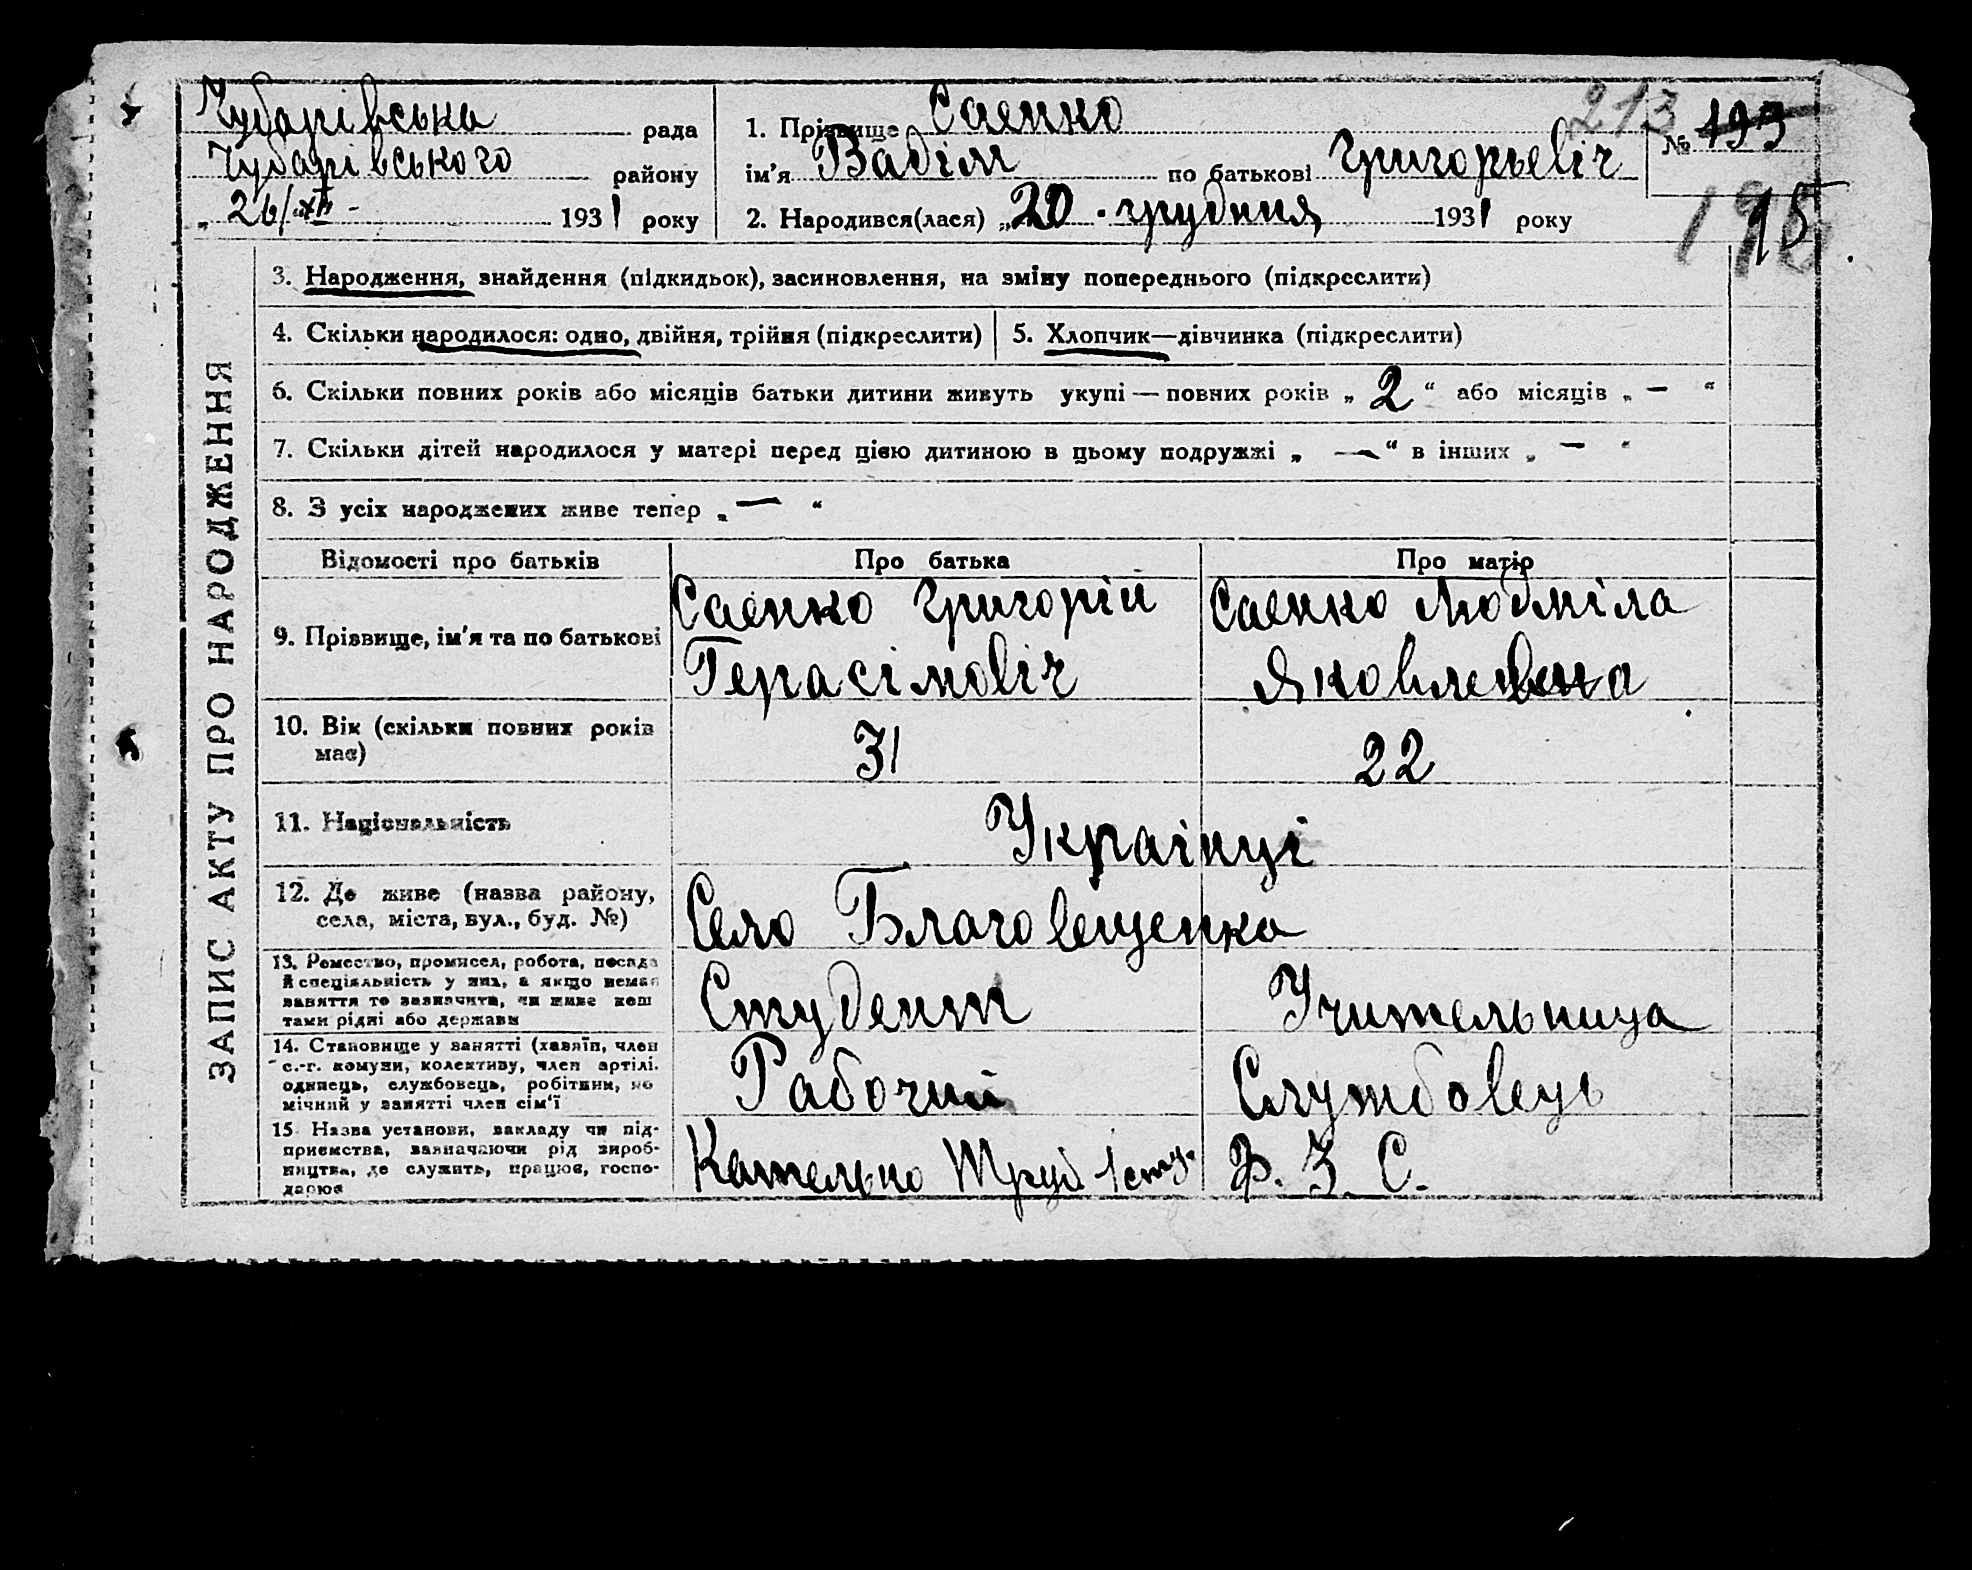 Чубарівська рада
Чубарівського району
„ 26/XII - 1931 року
1. Прізвище Саенко
ім'я Вадім по батькові Григорьевіч
2. Народився(лася) „20 грудння 1931 року
213
№ 193
195
ЗАПИС АКТУ ПРО НАРОДЖЕННЯ
3. Народження, знайдення (підкидьок), засиновлення, на зміну попереднього (підкреслити)
4. Скільки народилося: одно, двійня, трійня (підкреслити)
5. Хлопчик—дівчинка (підкреслити)
6. Скільки повних років або місяців батьки дитини живуть укупі — повних років „ 2 “ або місяців „ — “
7. Скільки дітей народилося у матері перед цією дитиною в цьому подружжі „ — “ в інших „ — “
8. З усіх народжених живе тепер „ — “
Відомості про батьків Про батька Про матір
9. Прізвище, ім'я та по батькові
Саенко Григорій
Герасімовіч
Саенко Людміла
Яковлевена
10. Вік (скільки повних років
має)
31
22
11. Національність
Украінці
12. Де живе (назва району,
села, міста, вул., буд. №)
Село Благовещенка
13. Ремество, промисел, робота, посада
й спеціяльність у них, а якщо немає
заняття то зазначити, чи живе кош
тами рідні або держави
Студент
Учительница
14. Становище у занятті (хазяїн, член
с.-г. комуни, колективу, член артілі,
одинець, службовець, робітник, по
мічний у занятті член сім'ї
Рабочий
Службовець
15. Назва установи, закладу чи під-
приемства, зазначаючи рід вироб-
ництва, де служить, працює, госпо-
дарює
Ф. З. С.